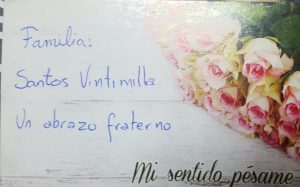 Familia:
Santos Vintimilla
Un abrazo fraterno
Mi sentido pésame